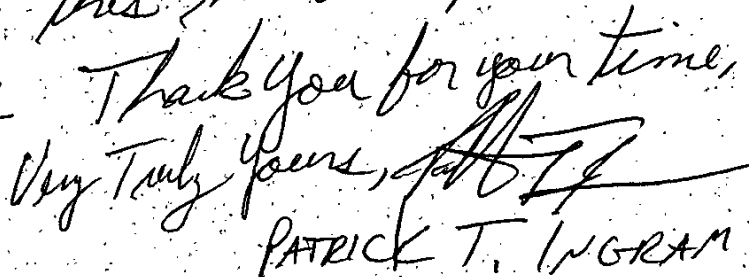 Thank you for your time,
Very Truly Yours,
PATRICK T. INGRAM